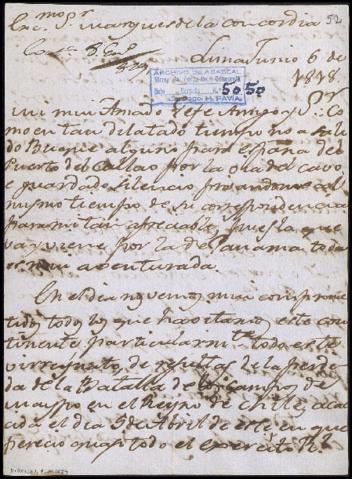 Exc.mo S.r Marques de la Concordia
52
Lima Junio 6 de
1818.
ARCHIVO DE ABASCAL
5050
mi muy Amado Gefe Amigo y S.r Co
mo en tan dilatado tiempo no a sali
do Buque alguno para españa del
Puerto del Callao por la via del cavo
e guardado silencio privandome al
mismo tiempo de su correspondencia
para mi tan apreciable, pues la que
va y viene por la de Panama toda
es muy aventurada.
En el dia nos vemos muy comprome
tidos todos los que havitamos este con
tinente particularm.te todo este
virreynato, de resultas de la perdi
da de la Batalla de los campos de
maypo en el Reyno de chile, acae
cida el dia 5 de Abril de este, en que
perecio casi todo el exercito R.l